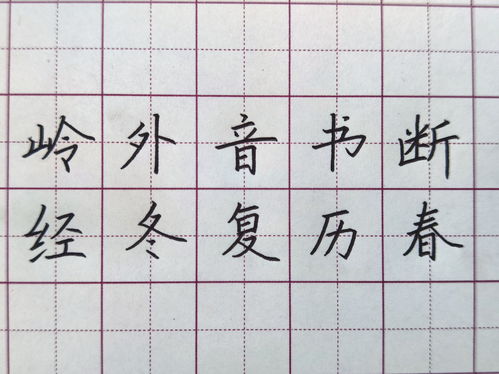 岭外音书断
经冬复历春